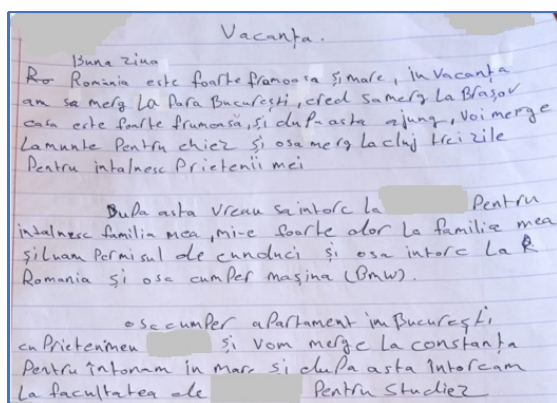 Vacanța.
Buna ziua
Ro România este foarte frumoasa și mare, in vacanța
am sa merg La Para București, cred sa merg La Brașov
casa este foarte frumoasă, și dupa asta ajung, voi merge
La munte Pentru chiez și osa merg la cluj trei zile
Pentru intalnesc Prietenii mei
Dupa asta vreau sa intorc la Pentru
intalnesc familia mea, mi-e foarte dor La familia mea
și luam Permisul de conduci și osa intorc La R
Romania și osa cumper mașina (Bmw).
osa cumper apartament im București
cu Prietenimeu și vom merge La constanța
Pentru întonam în mare si dupa asta întorcam
La facultatea de Pentru Studiez